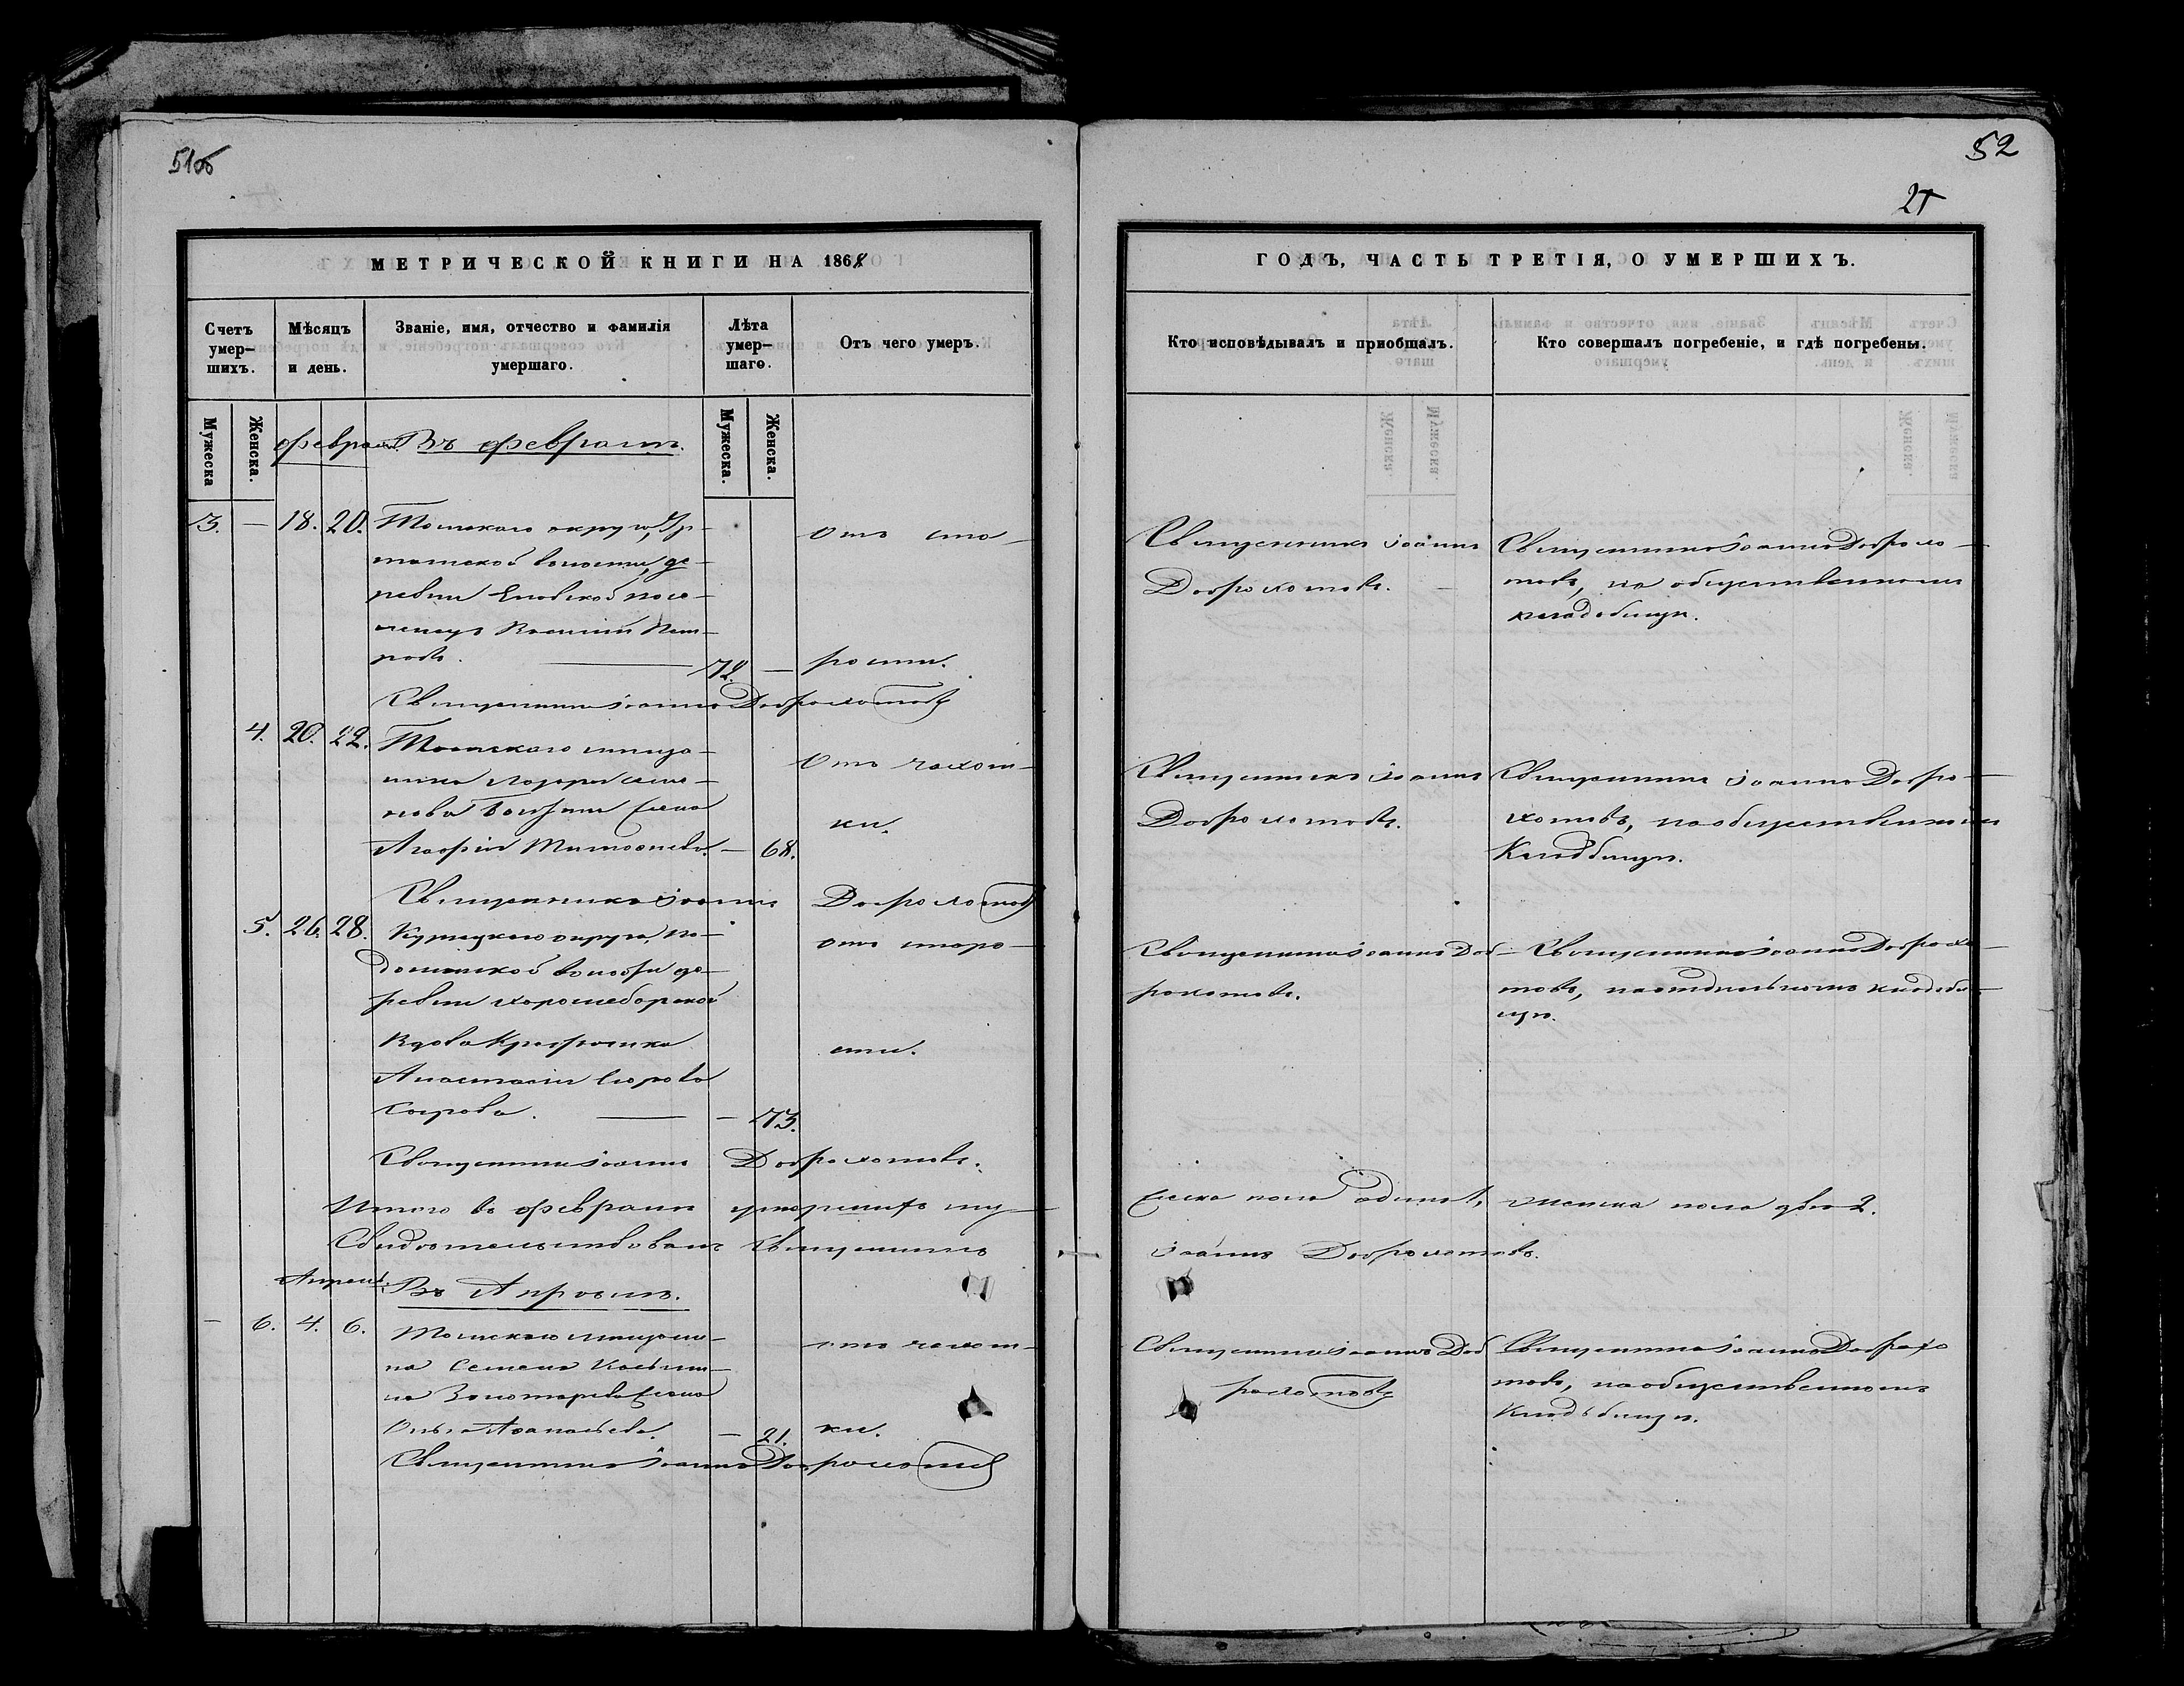 51об
МЕТРИЧЕСКОЙ КНИГИ НА 1868
Счетъ умер-шихъ.
Мѣсяцъ и день.
Званіе, имя, отчество и фамилія умершаго.
Лѣта умер-шаго.
Отъ чего умеръ.
Мужеска
Женска.
Мужеска.
Женска.
февраль
Въ февралѣ.
3. — 18. 20. Томскаго округа,
волости, де-
ревни Еловской посе-
ленецъ Василій Пет-
ровъ. — 72. —
отъ ста-
рости.
Священникъ Іоаннъ Доброхотовъ
4. 20. 22. Томскаго мѣща-
нина Лазаря Семе-
нова жена
Агафія Тимофеева. — 68.
отъ чахот-
ки.
Священникъ Іоаннъ Доброхотовъ
5. 26. 28. Кузнецкаго округа,
волости де-
ревни
Вдова Крестьянка
Анастасія Егорова
— 73.
отъ старо-
сти.
Священникъ Іоаннъ Доброхотовъ.
Итого въ февралѣ умершихъ му-
Свидѣтельствовалъ Священникъ
Апрель.
Въ Апрѣлѣ.
— 6. 4. 6. Томскаго мѣщани-
на Семена Касьяно-
ва Золотарева жена
Ольга Афанасьева. — 21.
отъ чахот-
ки.
Священникъ Іоаннъ Доброхотовъ
52
21
ГОДЪ, ЧАСТЬ ТРЕТІЯ, О УМЕРШИХЪ.
Кто исповѣдывалъ и пріобщалъ.
Кто совершалъ погребеніе, и гдѣ погребены.
Священникъ Іоаннъ
Доброхотовъ. —
Священникъ Іоаннъ Доброхо-
товъ, на общественномъ
кладбищѣ.
Священникъ Іоаннъ
Доброхотовъ.
Священникъ Іоаннъ Добро-
хотовъ, на общественномъ
Кладбищѣ.
Священникъ Іоаннъ Доб-
рохотовъ.
Священникъ Іоаннъ Доброхо-
товъ, на отдѣльномъ кладби-
щѣ.
жеска пола одинъ 1, женска пола двѣ 2.
Іоаннъ Доброхотовъ.
Священникъ Іоаннъ Доб
рохотовъ
Священникъ Іоаннъ Доброхо
товъ, на общественномъ
Кладбищѣ.